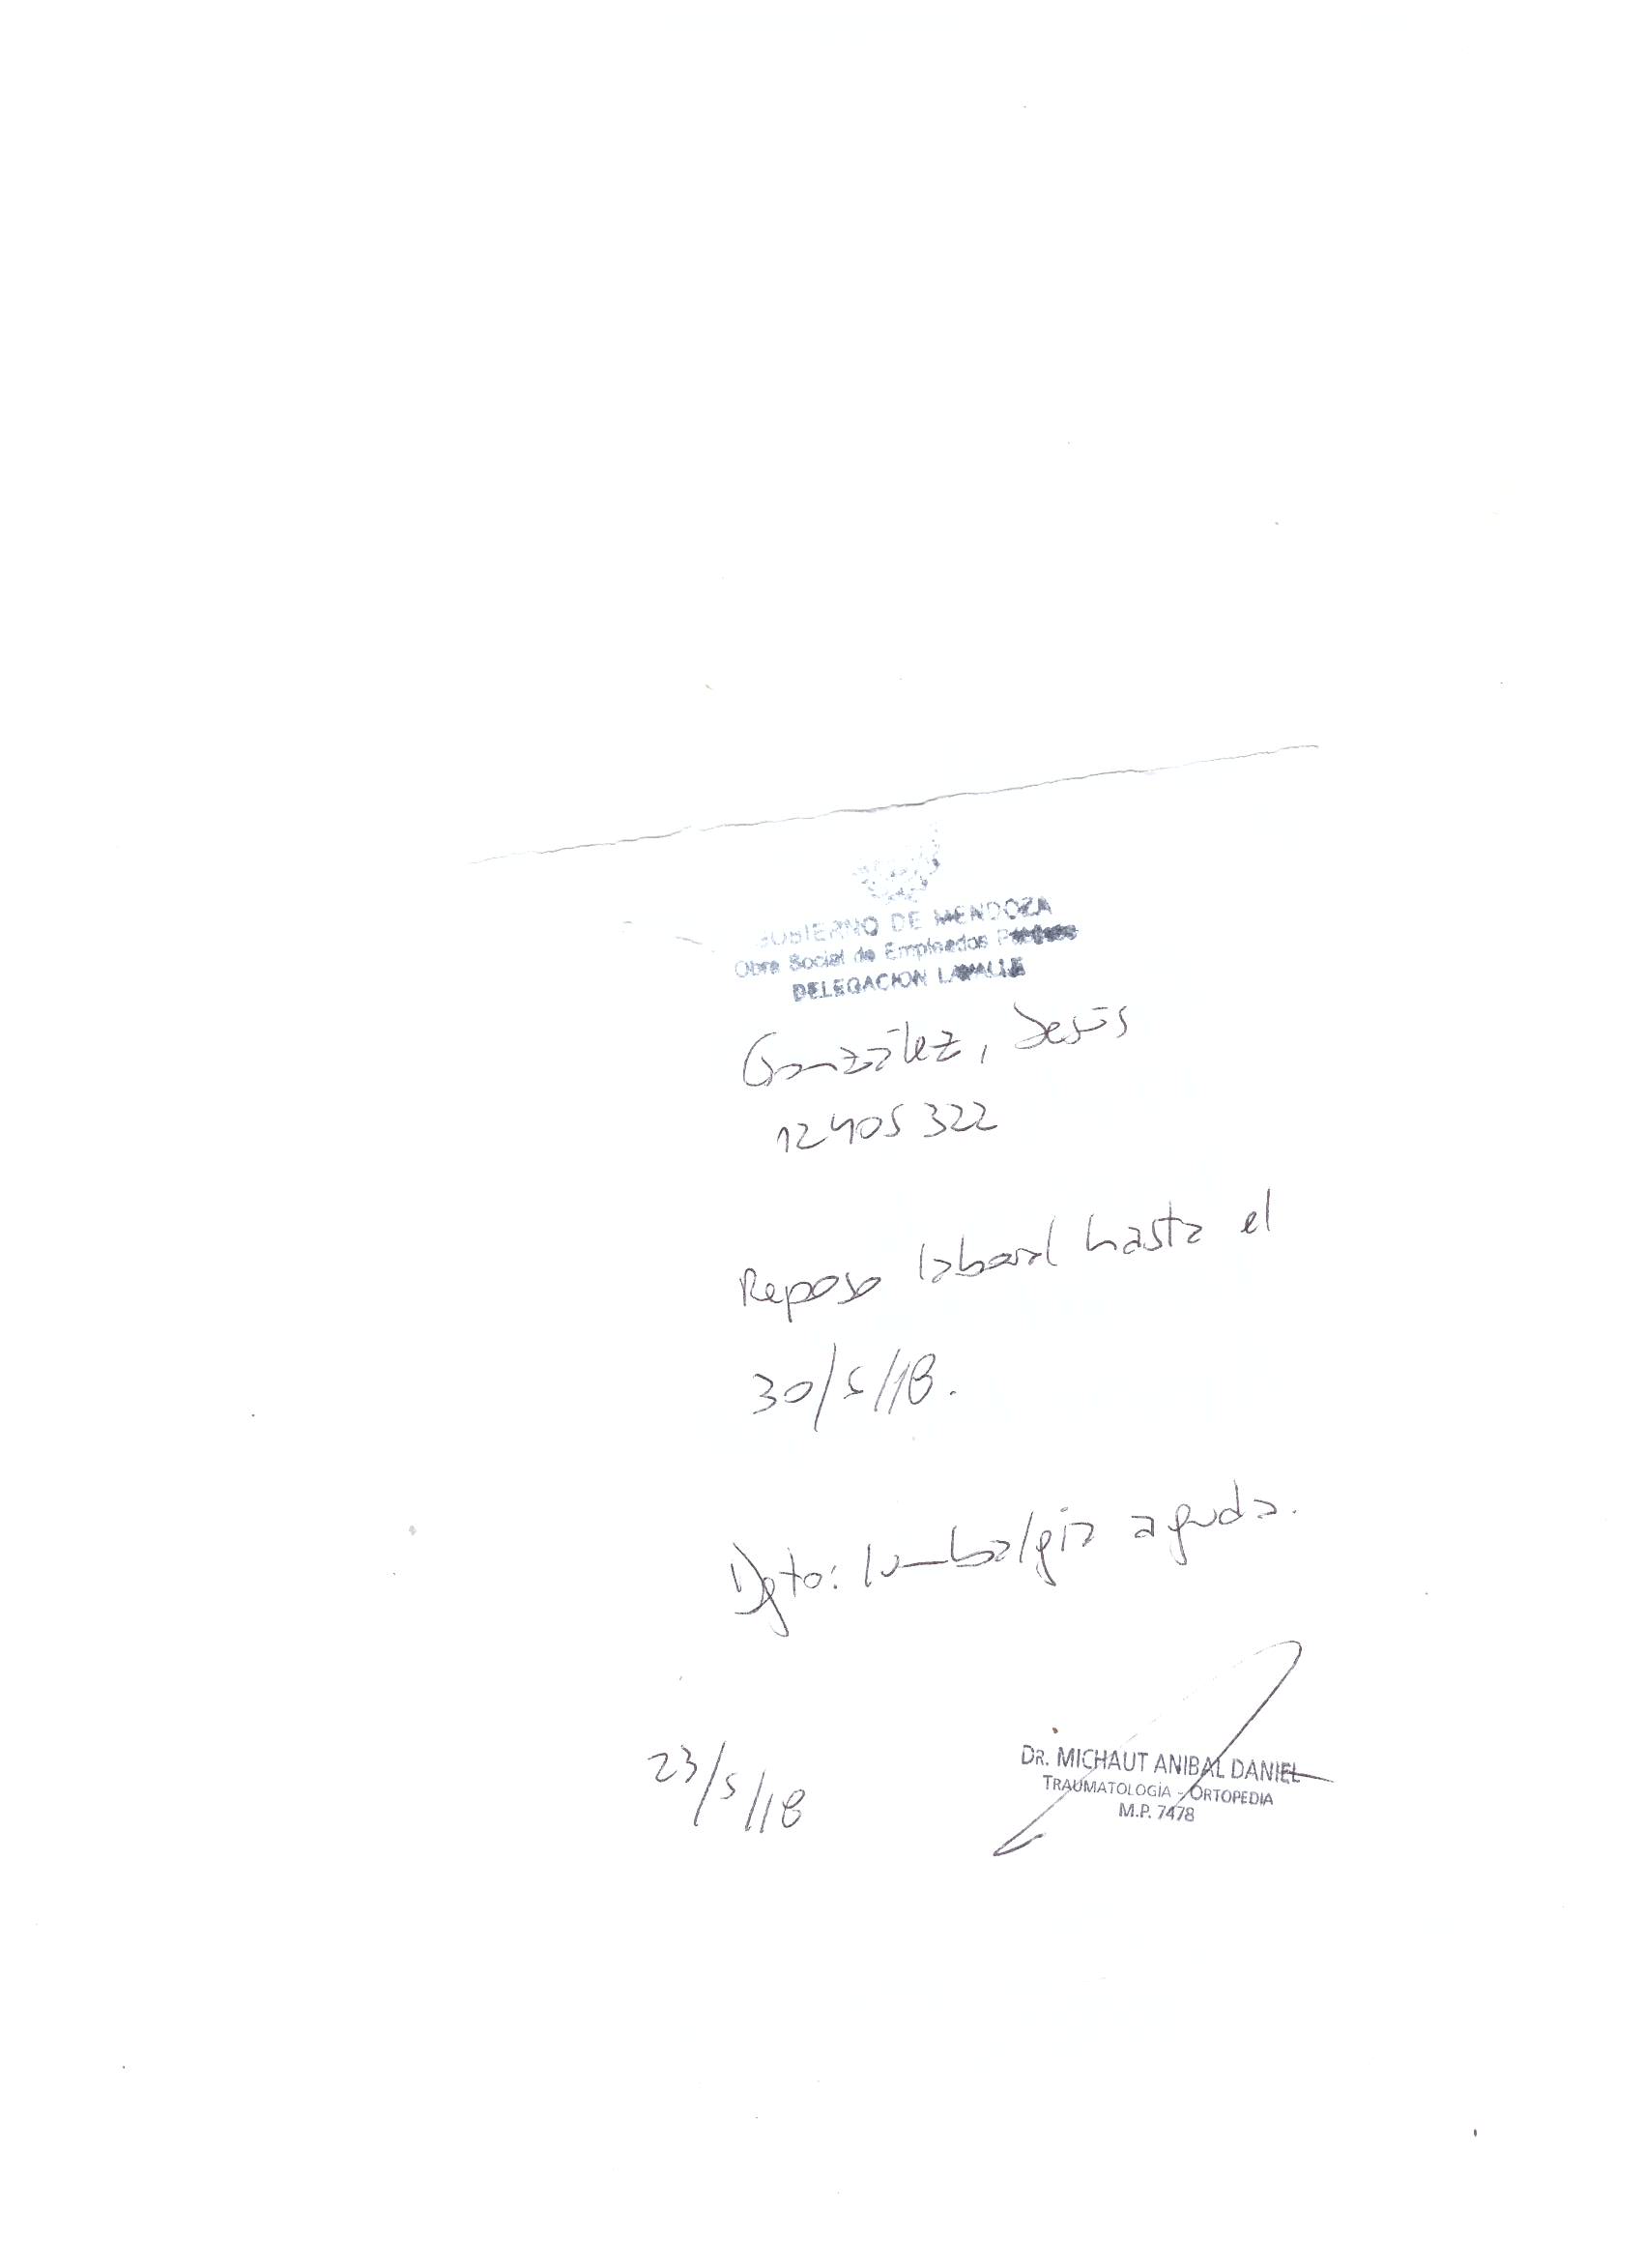 GOBIERNO DE MENDOZA
Obra Social de Empleados Publicos
DELEGACION LAVALLE
González, Jesús
12405322
Reposo laboral hasta el
30/5/18.
Dgto: lumbalgia aguda.
23/5/18
DR. MICHAUT ANIBAL DANIEL
TRAUMATOLOGÍA - ORTOPEDIA
M.P. 7478